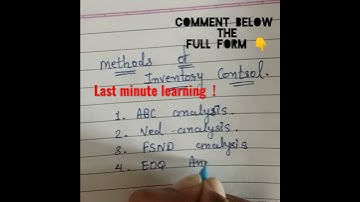 COMMENT BELOW
THE
FULL FORM 👇
Methods of
Inventory Control.
Last minute learning !
1. ABC analysis.
2. Ved analysis.
3. FSND analysis
4. EOQ An